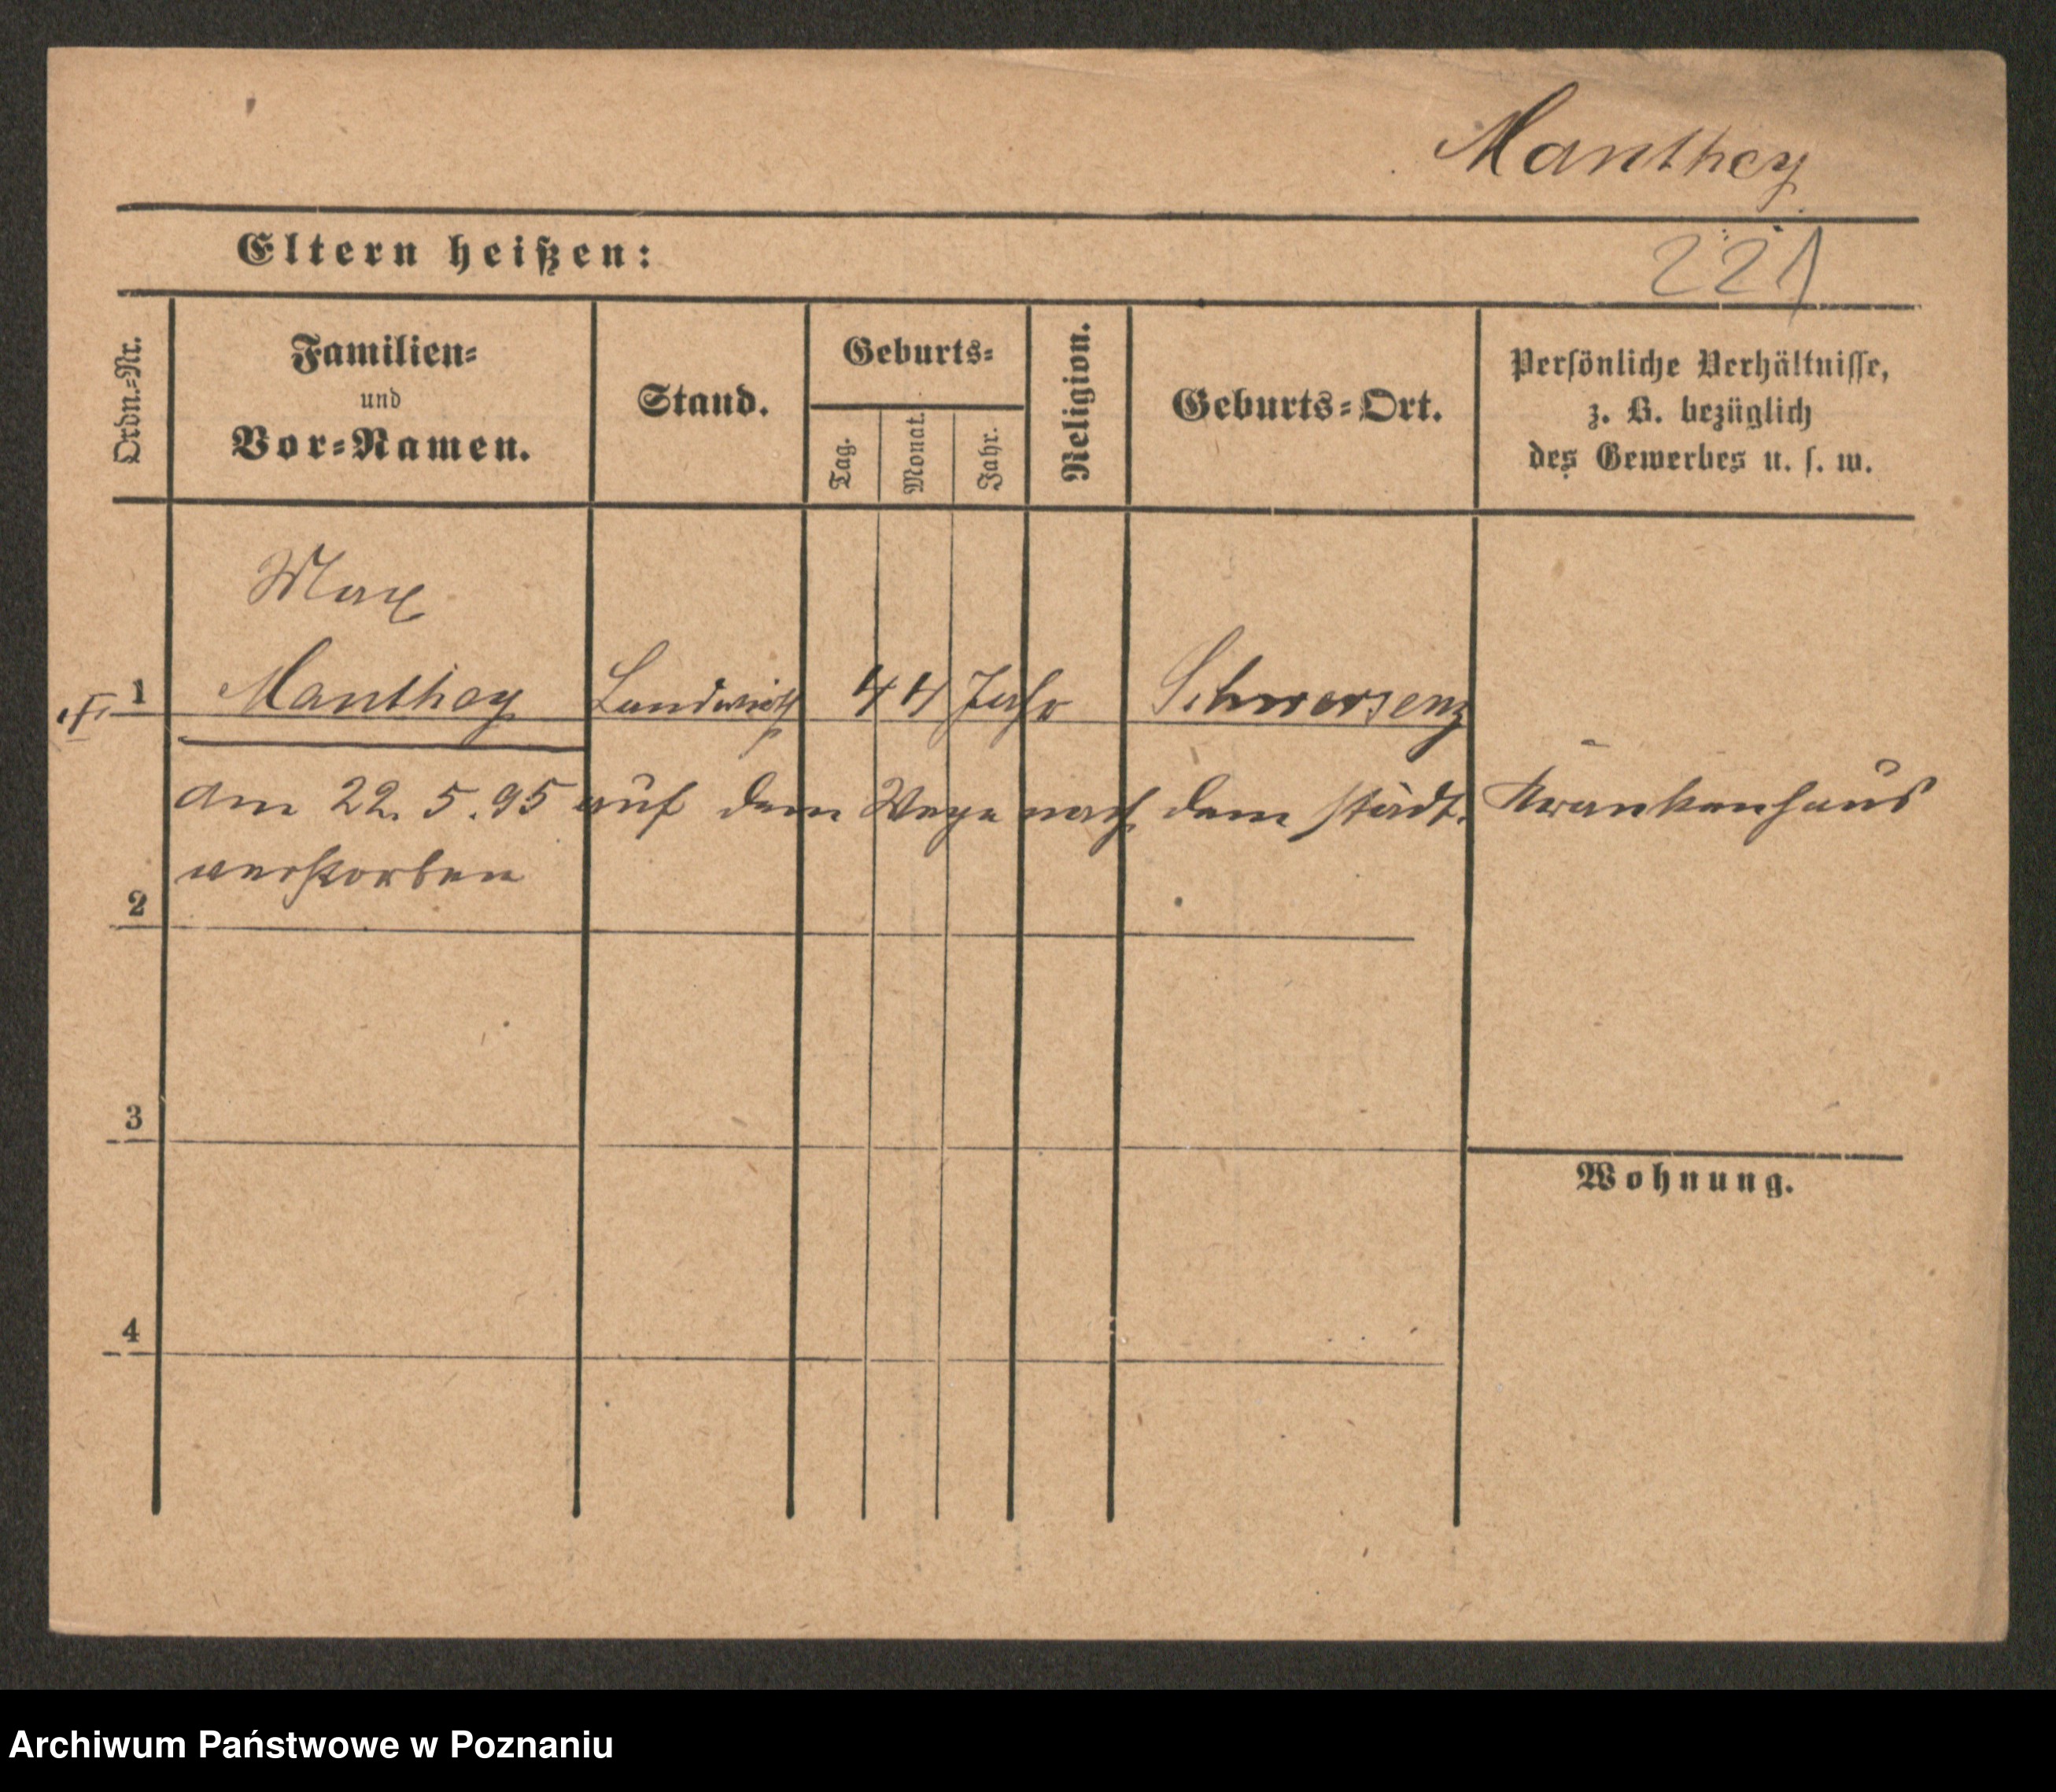 Manthey
Eltern heißen:
221
Ordn.=Nr.
Familien=
und
Vor=Namen.
Stand.
Geburts=
Tag.
Monat.
Jahr.
Religion.
Geburts=Ort.
Persönliche Verhältnisse,
z. B. bezüglich
des Gewerbes u. s. w.
Max
1 Manthey Landwirth 44 Jahr Schwersenz
am 22. 5. 95 auf dem Wege nach dem städt. Krankenhaus
verstorben
2
3
Wohnung.
4
Archiwum Państwowe w Poznaniu